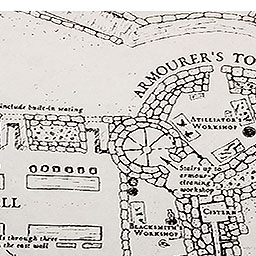 ARMOURER'S TO
include built-in seating
ATILLIATOR'S
WORKSHOP
Stairs up to
armour-
cleaning
workshop
LL
CISTERN
BLACKSMITH'S
WORKSHOP
ls through three
the east wall